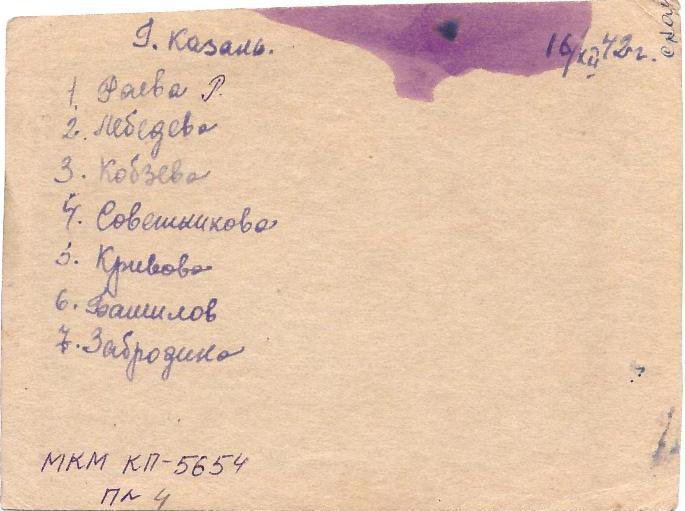 Г. Казань.
16/XII 42 г.
1. Раева Р.
2. Лебедева
3. Кобзева
4. Советникова
5. Кривова
6. Башилов
7. Забродина
МКМ КП-5654
ПЛ 4